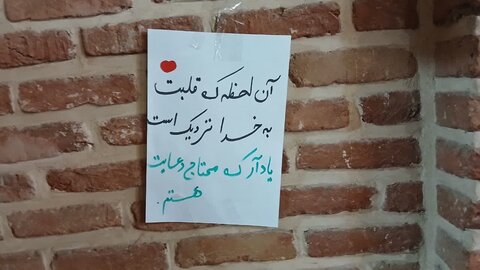 آن لحظه که قلبت
به خدا نزدیک است
یادآر که محتاج دعایت
هستم.